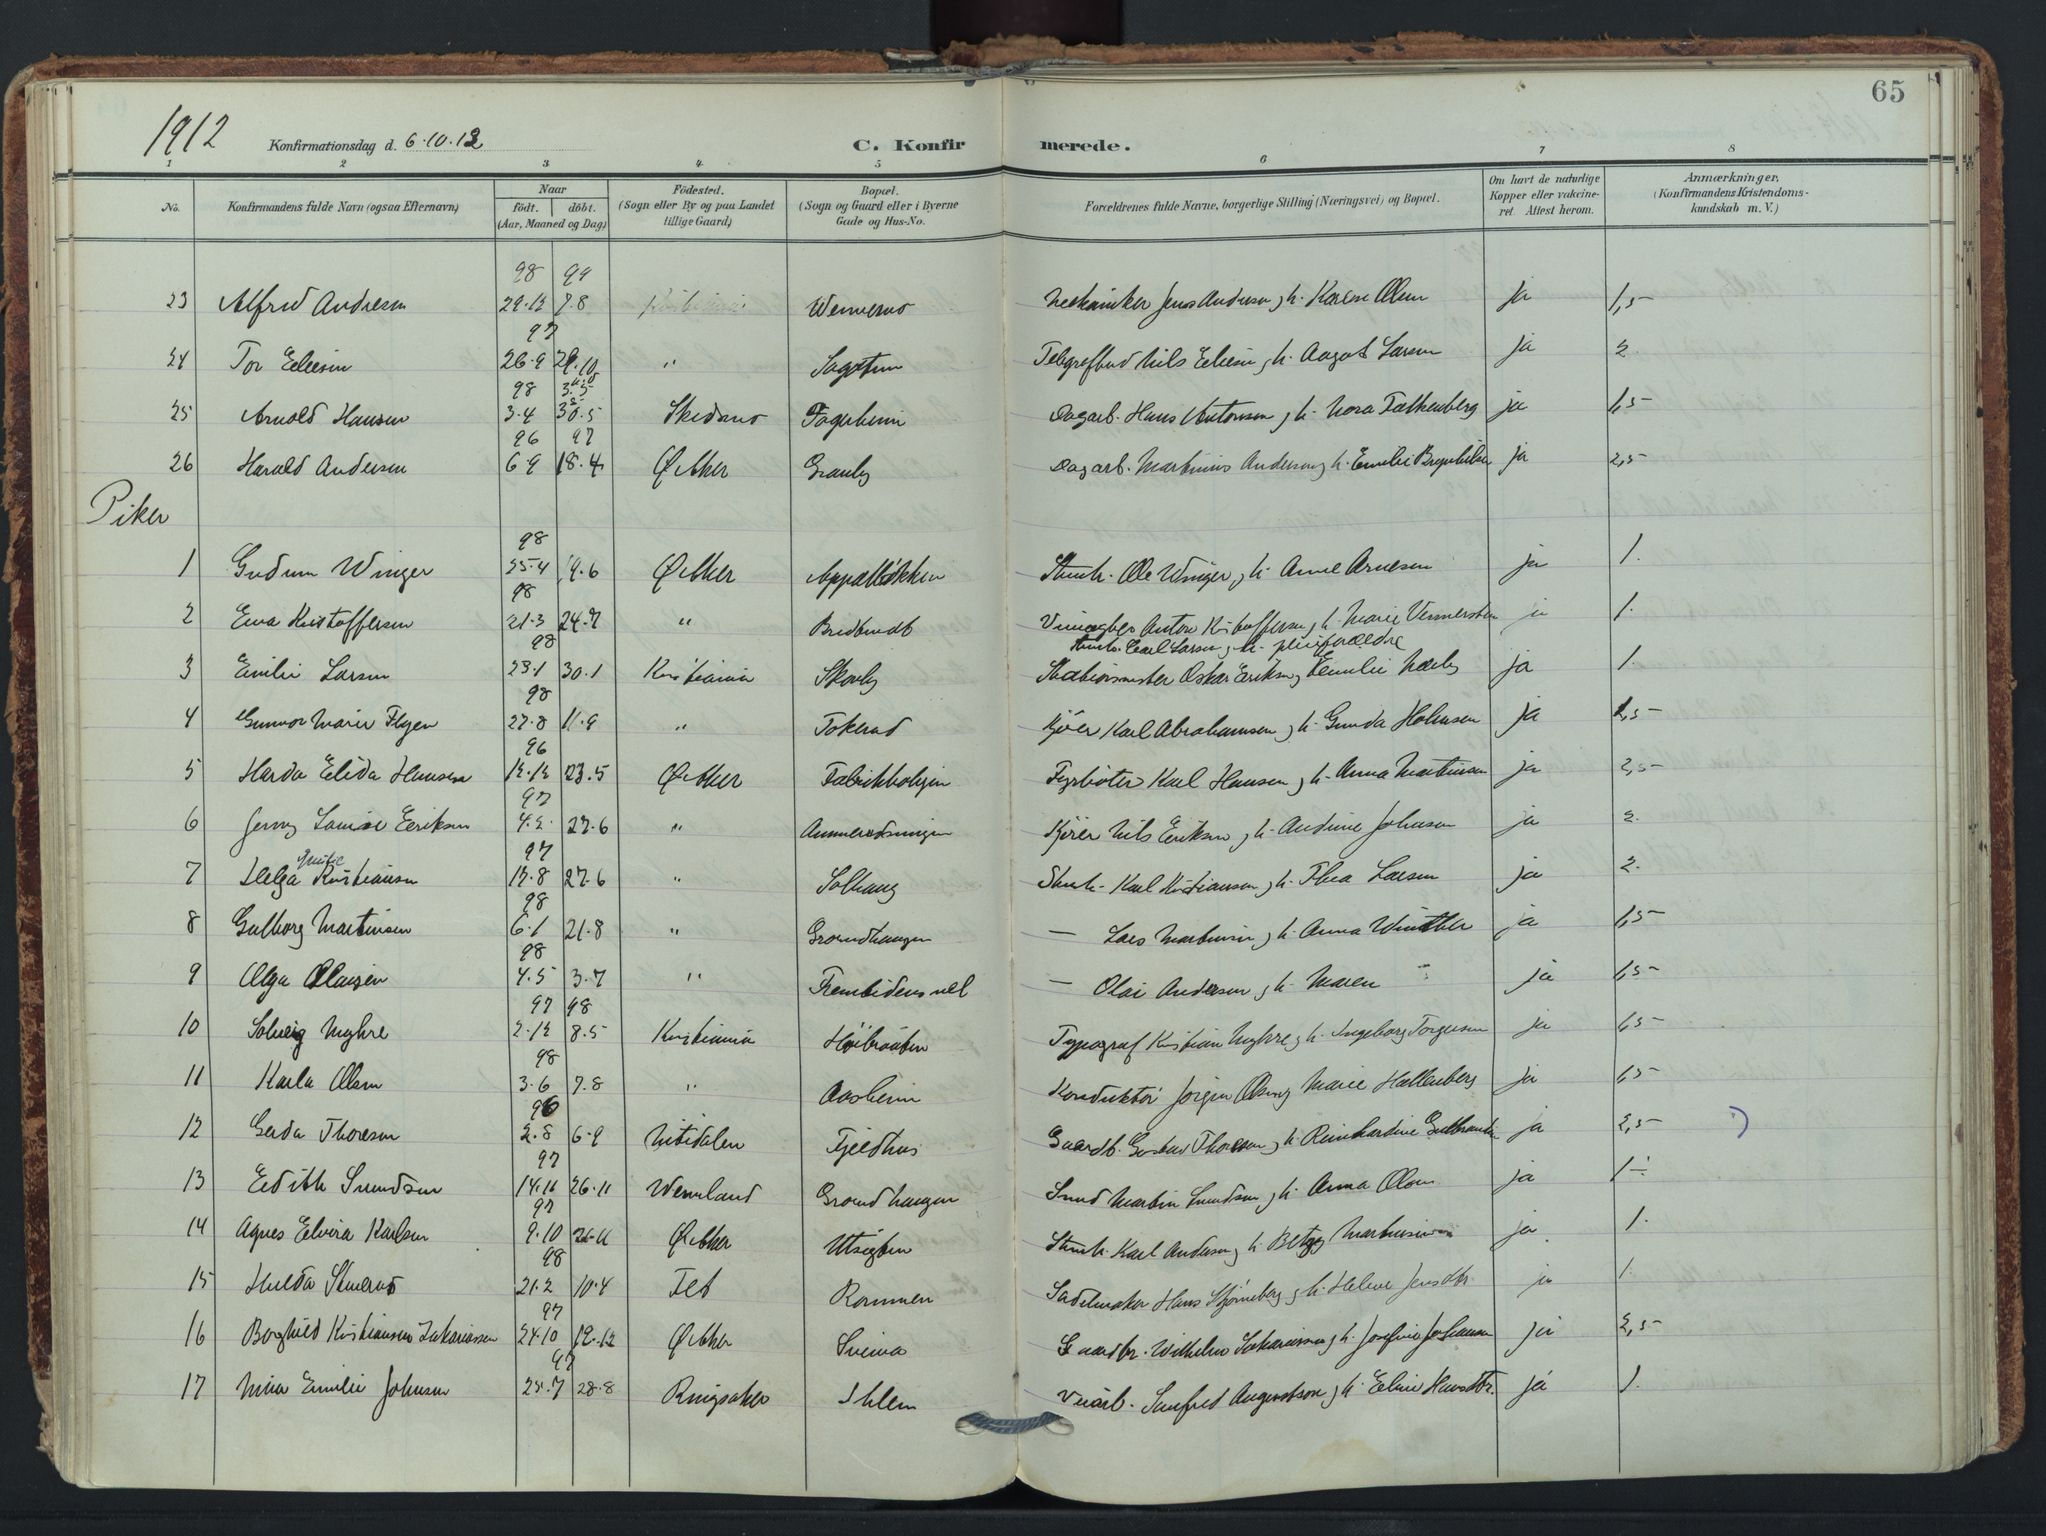 65
1912 Konfirmationsdag d. 6.10.12 C. Konfirmerede.
1 2 3 4 5 6 7 8
No. Konfirmandens fulde Navn (ogsaa Efternavn) Naar født. døbt. (Aar, Maaned og Dag) Födested. (Sogn eller By og paa Landet tillige Gaard) Bopæl. (Sogn og Gaard eller i Byerne Gade og Hus-No. Forældrenes fulde Navne, borgerlige Stilling (Næringsvei) og Bopæl. Om havt de naturlige Kopper eller vakcineret Attest herom. Anmærkninger, (Konfirmandens Kristendomskundskab m. V.)
98 99
23 Alfred Andresen 29.12 7.8 Kristiania ja 1,5
97
24 Tor Eliesen 26.9 29.10 " Sagtun Telegrafbud Nils Eliesen, h. Aagot Larsen ja 2.
98
25 Arnold Hansen 3.4 30.5 Skedsmo Fagerheim Dagarb. Hans Antonsen, h. Nora Falkenberg ja 1,5
96 97
26 Harald Andersen 6.9 18.4 Ø. Aker Granly Dagarb. Martinius Andersen, h. Emilie ja 2,5
Piker
98
1 Gudrun Winger 25.4 19.6 Ø. Aker Appalløkken Stenh. Ole Winger, h. Anne Arnesen ja 1.
98
2 Ewa Kristoffersen 21.3 24.7 " Anton Kristoffersen, h. Marie ja 1.
Stenh. Carl Larsen, h. pleieforældre
98
3 Emilie Larsen 23.1 30.1 Kristiania Skovly Stationsmester Oskar Eriksen, Emilie Næsby ja 1.
98
4 Gunvor Marie Flygen 27.8 11.9 " Tokerud Kjører Karl Abrahamsen, h. Gunda Holmsen ja 1,5
96
5 Harda Elida Hansen 12.12 23.5 Ø. Aker Fabrikboligen Fyrbøter Karl Hansen, h. Anna Martinsen ja 2,5
97
6 Jenny Louise Eriksen 4.2. 27.6 " Ammerudsvingen Kjører Nils Eriksen, h. Andrine Johnsen ja 2.
97
7 Helga Kristiansen 12.8 27.6 " Solhaug Stenh. Karl Kristiansen, h. Thea Larsen ja 2.
98
8 Gulborg Martinsen 6.1 21.8 " Grorudhaugen — Lars Martinsen, h. Anna Winther ja 1,5
98
9 Olga Olaisen 4.5 3.7 " Fremtidens vel — Olai Andersen, h. Maren " ja 1,5
97 98
10 Solveig Myhre 2.12 8.5 Kristiania Høibraaten Typograf Kristian Myhre, h. Ingeborg Torgersen ja 1,5
98
11 Karla Olsen 3.6 7.8 " Aasheim Konduktør Jørgen Olsen, Marie Hallenberg ja 1,5
96
12 Gerda Thoresen 2.8 6.9 Nitedalen Fjeldhus Gaardb. Gustav Thoresen, h. Reinhardine ja 2,5
97
13 Edith Svendsen 14.11 26.11 Wermland Grorudhaugen Smed Martin Svendsen, h. Anna Olsen ja 1÷
97
14 Agnes Elvira Karlsen 9.10 26.11 Ø. Aker Utsigten Stenh. Karl Andersen, h. Betzy Martinsen ja 1.
98
15 Hulda 21.2 10.4 Fet Rommen Sadelmaker Hans Stjørneberg, h. Helene Jensdtr. ja 1.
97
16 Borghild Kristiansen Zakariassen 24.10 12.12 Ø. Aker Sveiva Gaardbr. Wilhelm Zakariassen, h. Josefine Johansen ja 2,5
97
17 Nina Emilie Johnsen 25.7 28.8 Ringsaker Ihlem Veiarb. Sanfred Augustson, h. Eline Hansdtr. ja 1.